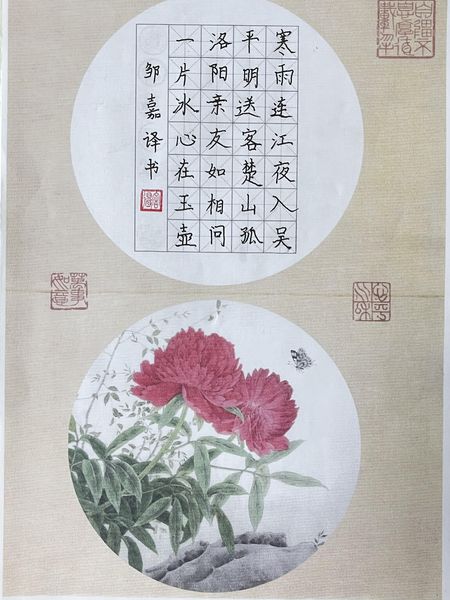 寒雨连江夜入吴
平明送客楚山孤
洛阳亲友如相问
一片冰心在玉壶
邹嘉译书
萬事如意